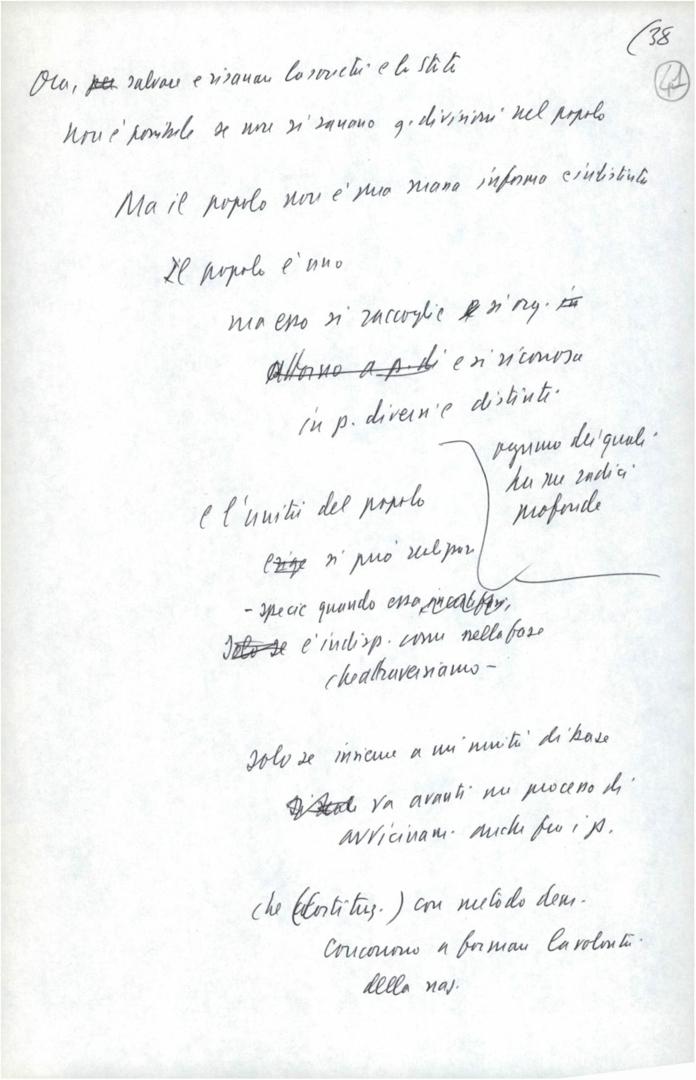 (38
41
Ora, per salvare e risanare la società e lo Stato
Non è possibile se non si sanano q. divisioni nel popolo
Ma il popolo non è una massa informe e indistinta
Il popolo è uno
ma esso si raccoglie e si org. in
attorno a p. di e si riconosce
in p. diversi e distinti.
ognuno dei quali
ha sue radici
profonde
e l'unità del popolo
esige si può sul por
- specie quando essa
Solo se è indisp. come nella fase
che attraversiamo -
solo se insieme a un'unità di base
va avanti un processo di
avvicinam. anche fra i p.
che (Costituz.) con metodo dem.
concorrono a formare la volontà
della naz.